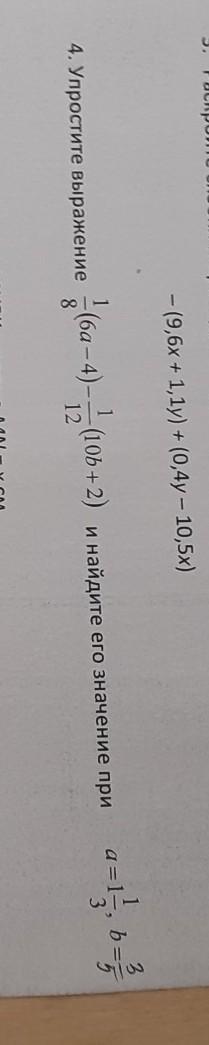 − (9,6x + 1,1y) + (0,4y − 10,5x)
4. Упростите выражение 1/8(6a − 4) − 1/12(10b + 2) и найдите его значение при a = 1 1/3, b = 3/5